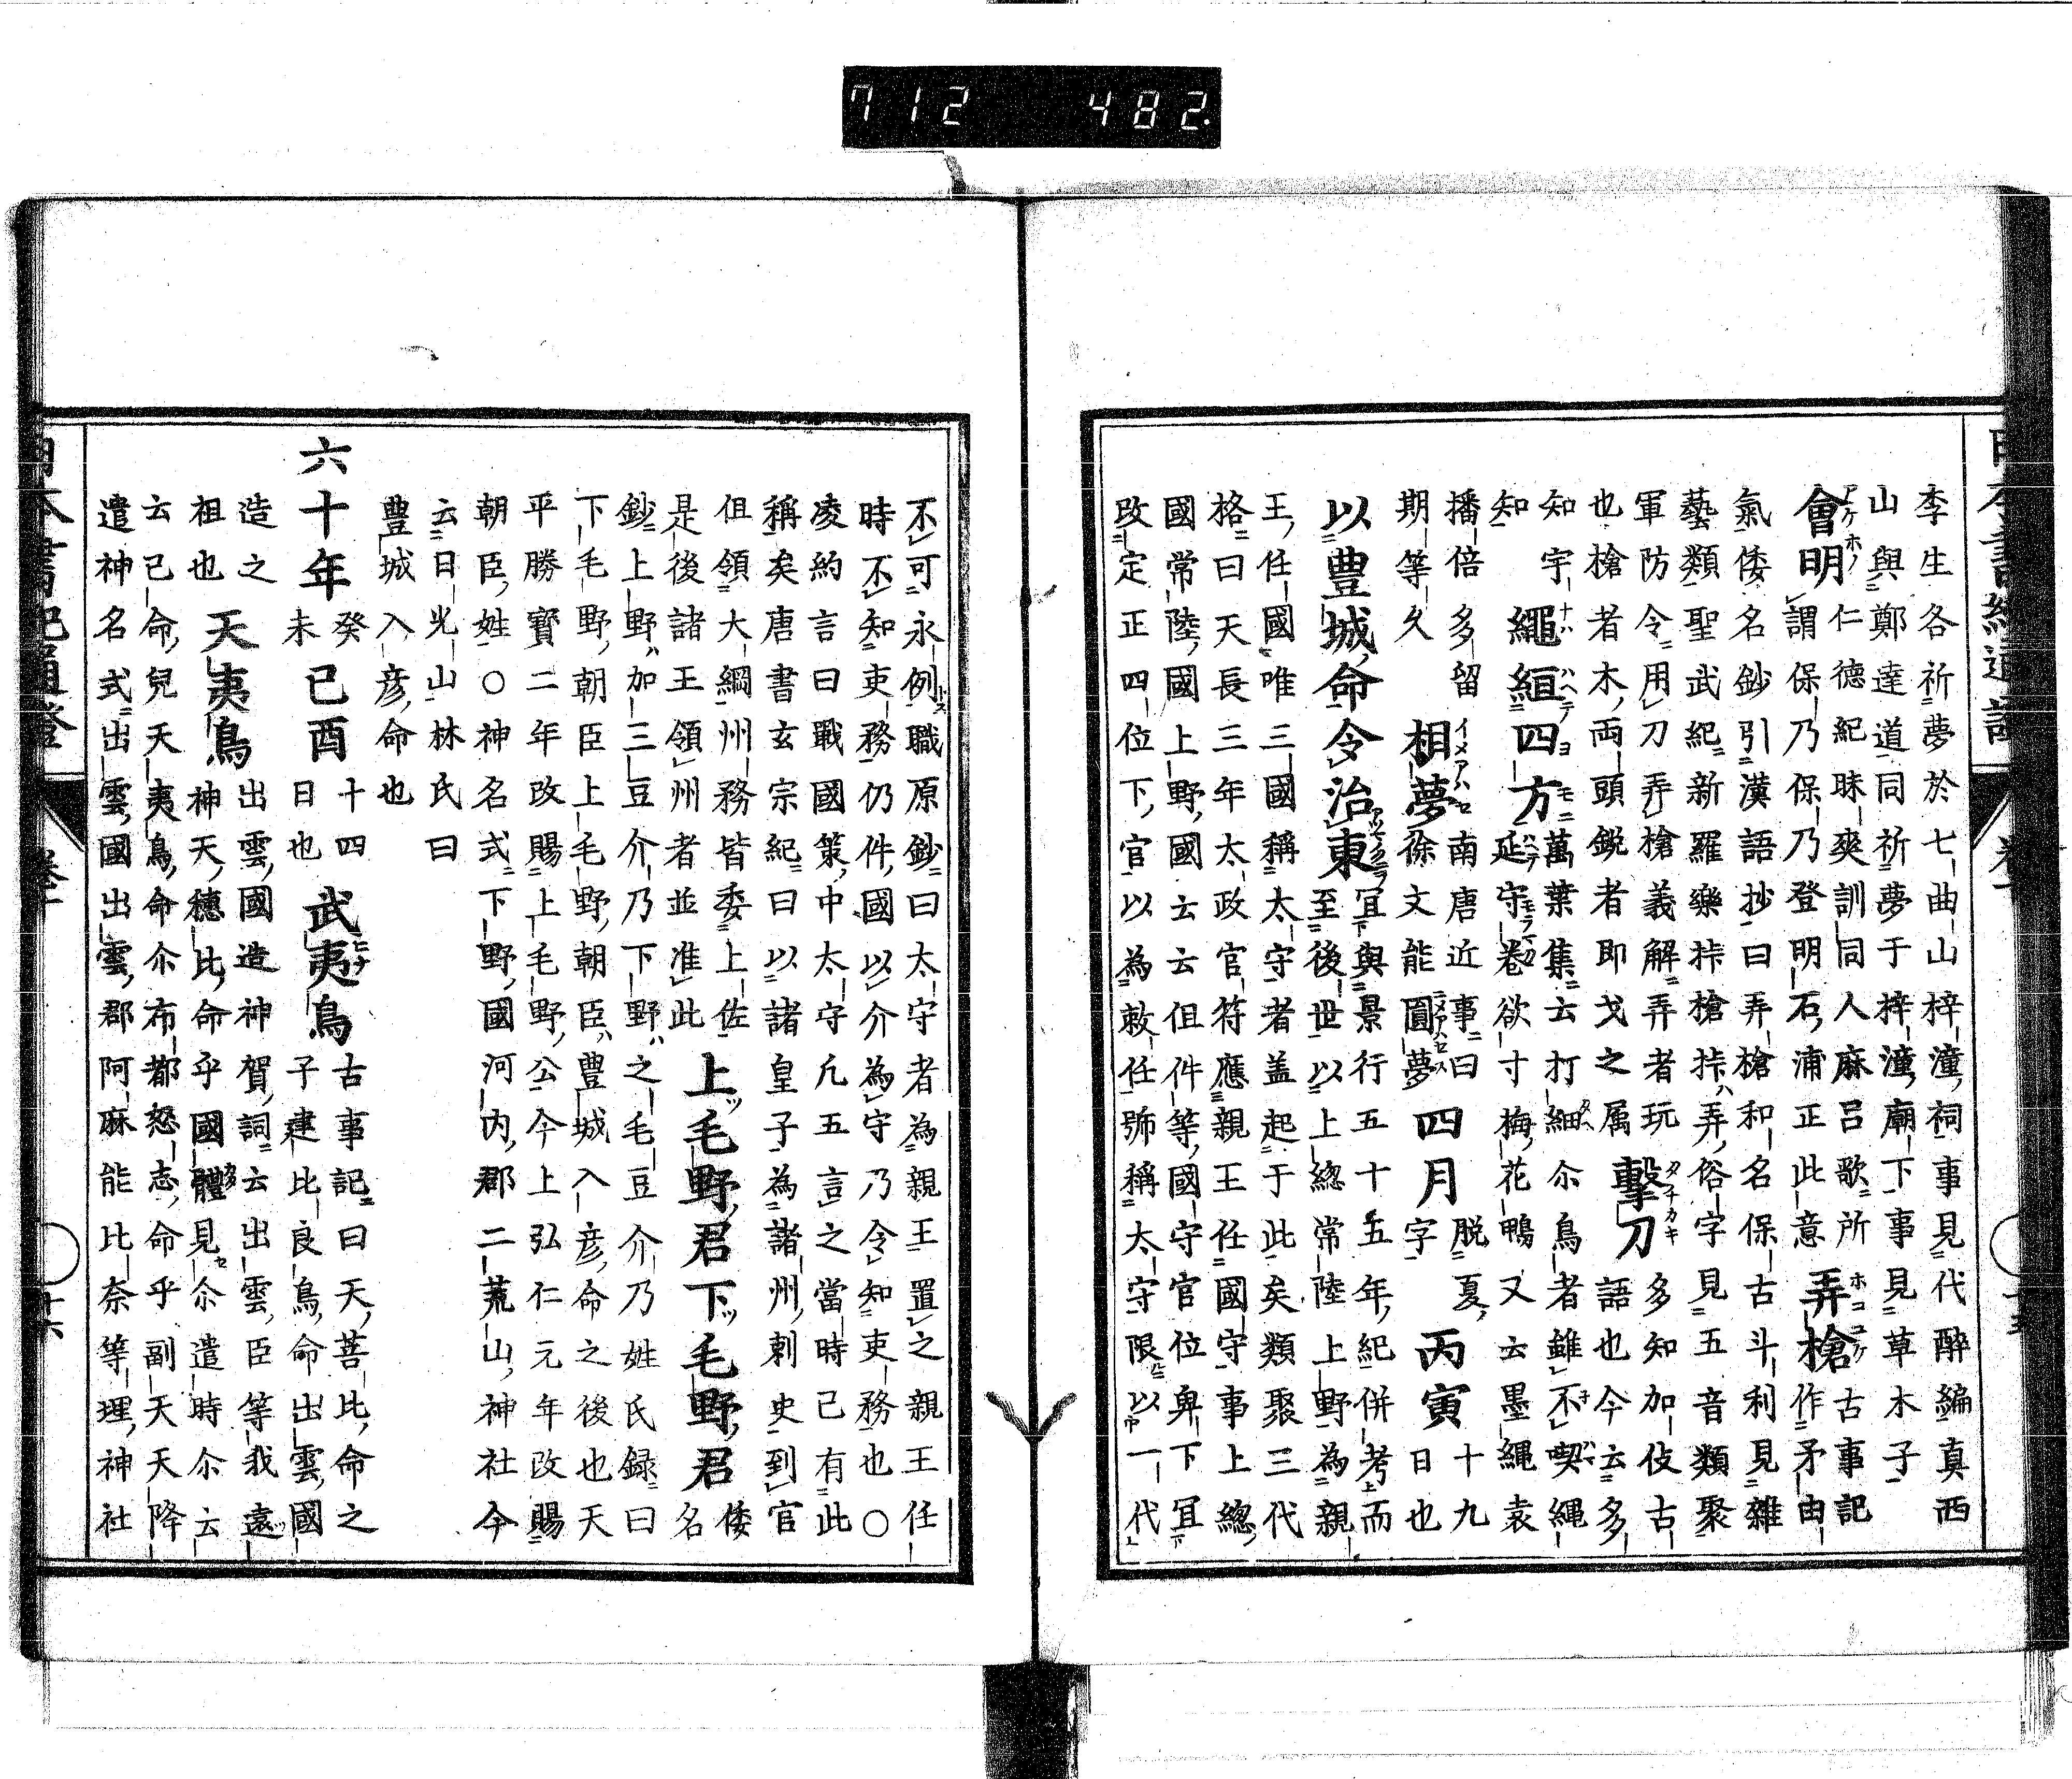 712 482.
李生各祈夢於七曲山梓潼祠事見代醉編真西
山與鄭達道同祈夢于梓潼廟下事見草木子
會明仁德紀昧爽訓同人麻呂歌所
謂保乃保乃登明石浦正此意弄槍古事記
作矛由
氣倭名鈔引漢語抄曰弄槍和名保古斗利見雜
藝類聖武紀新羅樂㧊槍㧊弄俗字見五音類聚
軍防令用刀弄槍義解弄者玩也槍者木兩頭鋭者即戈之属擊刀多知加伎古
語也今云多
知宇繩絚四方萬葉集云打細尒鳥者雖不喫縄
延守卷欲寸梅花鴨又云墨縄袁
播倍多留相夢南唐近事曰四月脱夏丙寅十九
期等久徐文能圓夢字日也
以豊城命令治東宜與景行五十五年紀併考而
至後世以上總常陸上野為親
王任國唯三國稱太守者盖起于此矣類聚三代
格曰天長三年太政官符應親王任國守事上總
國常陸國上野國云云但件等國守官位卑下宜
改定正四位下官以為敕任號稱太守限以一代
不可永例職原鈔曰太守者為親王置之親王任
時不知吏務仍件國以介為守乃令知吏務也○
凌約言曰戰國策中太守凡五言之當時已有此
稱矣唐書玄宗紀曰以諸皇子為諸州刺史到官
但領大綱州務皆委上佐
是後諸王領州者並准此上毛野君下毛野君倭
名
鈔上野加三豆介乃下野之毛豆介乃姓氏録曰
下毛野朝臣上毛野朝臣豊城入彦命之後也天
平勝寶二年改賜上毛野公今上弘仁元年改賜
朝臣姓○神名式下野國河内郡二荒山神社今
云日光山林氏曰
豊城入彦命也
六十年癸未己酉十四日也武夷鳥古事記曰天菩比命之
子建比良鳥命出雲國
造之
祖也天夷鳥出雲國造神賀詞云出雲臣等我遠
神天穗比命乎國體見尒遣時尒云
云己命兒天夷鳥命尒布都怒志命乎副天天降
遣神名式出雲國出雲郡阿麻能比奈等理神社